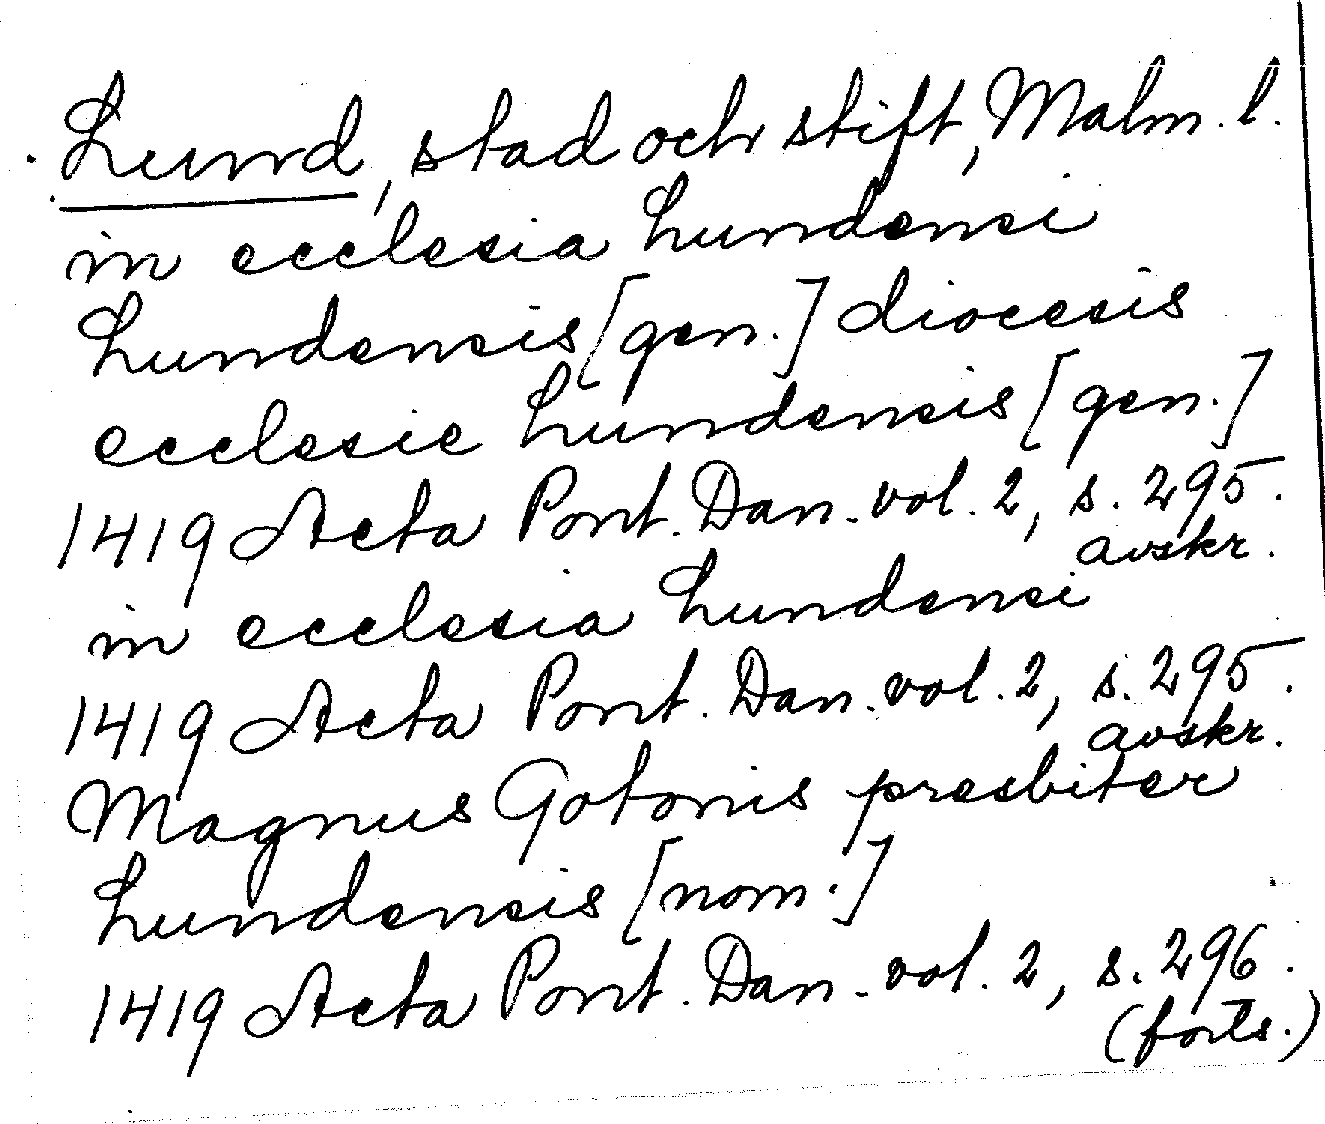 Lund, stad och stift, Malm. l.
in ecclesia Lundensi
Lundensis [gen.] diocesis
ecclesie Lundensis [gen.]
1419 Acta Pont. Dan. vol. 2, s. 295.
avskr.
in ecclesia Lundensi
1419 Acta Pont. Dan. vol. 2, s. 295.
avskr.
Magnus Gotonis presbiter
Lundensis [nom.]
1419 Acta Pont. Dan. vol. 2, s. 296.
(forts.)